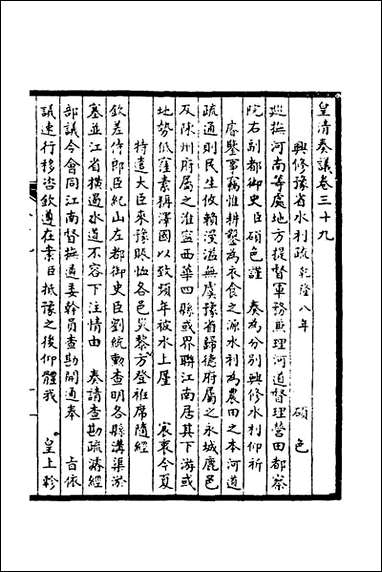 皇清奏議卷三十九
興修豫省水利政乾隆八年　碩色
巡撫河南等處地方提督軍務兼理河道督理營田都察
院右副都御史臣碩色謹　奏為分別興修水利仰祈
睿鑒事竊惟耕鑿為衣食之源水利為農田之本河道
疏通則民生攸賴漫溢無虞豫省歸德府屬之永城鹿邑
及陳州府屬之淮寧西華四縣或界聯江南居其下游或
地勢低窪素稱澤國以致頻年被水上厪　宸衷今夏
特遣大臣來豫賑恤各邑災黎方登袵席隨經
欽差侍郎臣紀山左都御史臣劉統勳查明各縣溝渠淤
塞並江省横遏水道不容下注情由　奏請查勘疏濬經
部議令會同江南督撫遴委幹員查勘開通奉　旨依
議速行移咨欽遵在案臣抵豫之後仰體我　皇上軫